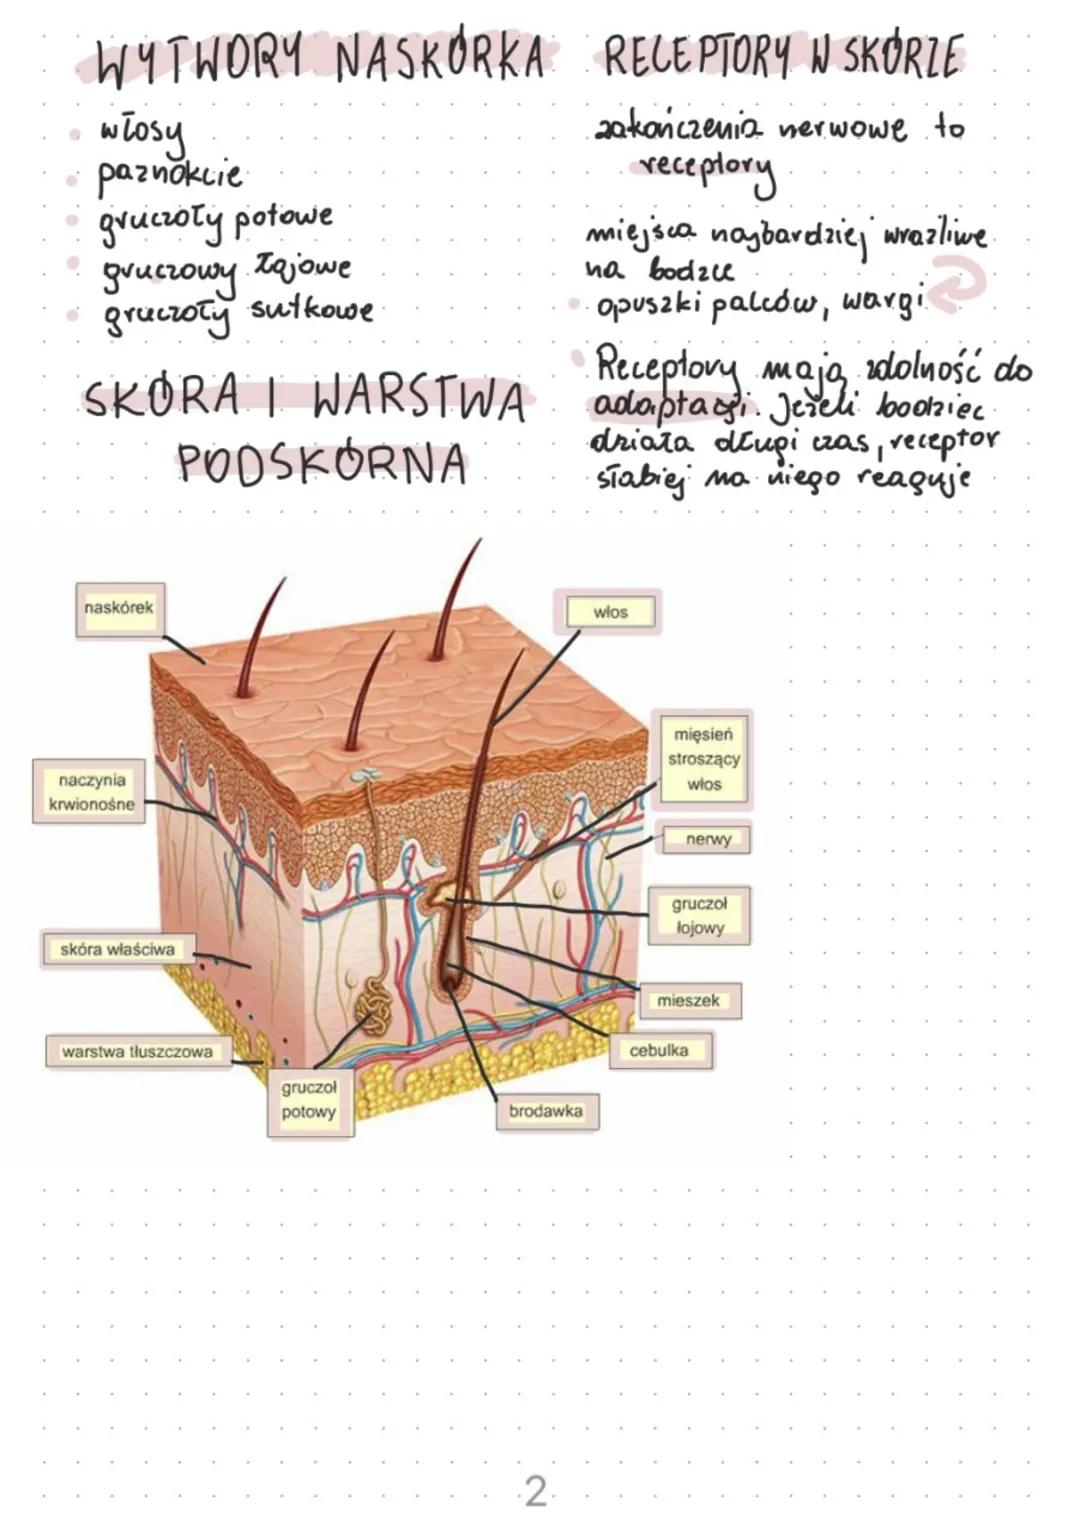 WYTWORY NASKÓRKA
włosy
paznokcie
gruczoły potowe
gruczowy łojowe
gruczoły sutkowe
SKÓRA I WARSTWA
PODSKÓRNA
RECEPTORY W SKÓRZE
zakończenia nerwowe to
receptory
miejsca najbardziej wrażliwe
na bodzce
opuszki palców, wargi
Receptory mają zdolność do
adaptacji. Jeżeli bodziec
działa długi czas, receptor
słabiej na niego reaguje
naskórek
włos
mięsień
stroszący
włos
naczynia
krwionośne
nerwy
gruczoł
łojowy
skóra właściwa
mieszek
warstwa tłuszczowa
cebulka
gruczoł
potowy
brodawka
2